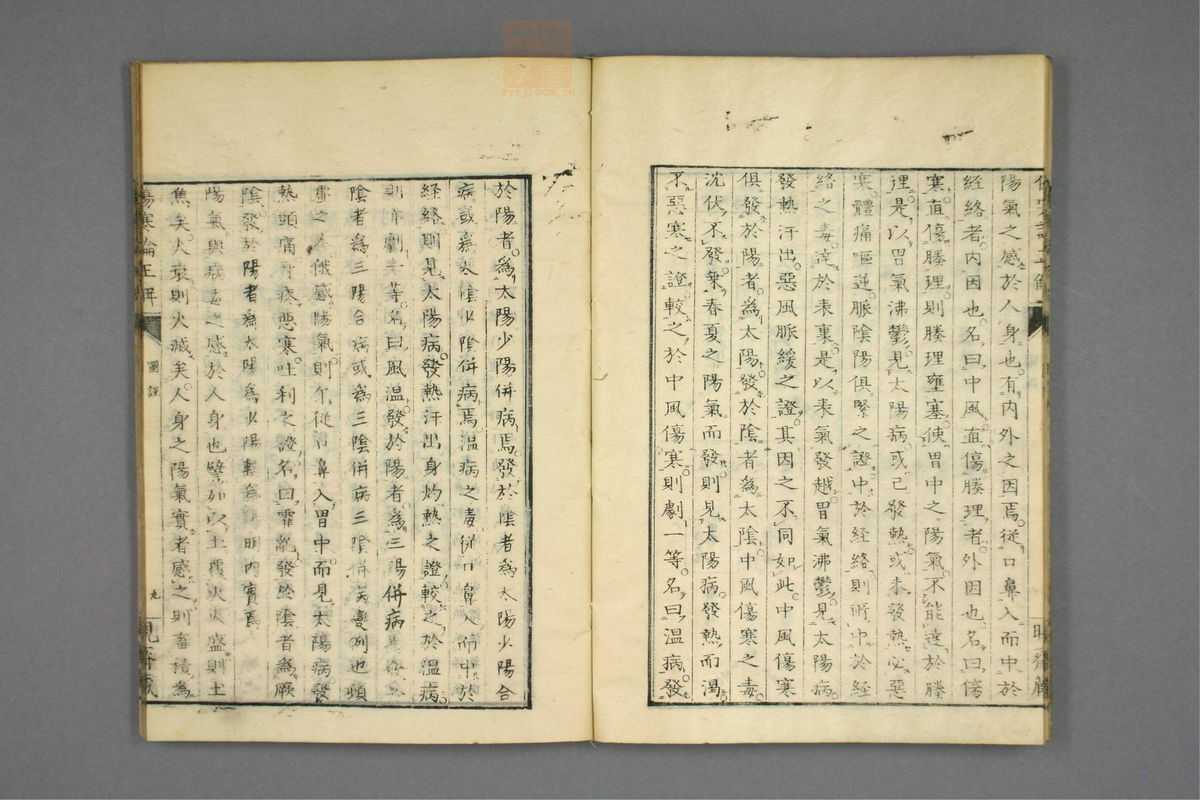 陽氣之感於人身也有內外之因焉從口鼻入而中於
経絡者內因也名曰中風直傷腠理者外因也名曰傷
寒直傷腠理則腠理壅塞使胃中之陽氣不能達於腠
理是以胃氣沸鬱見太陽病或已發熱或未發熱必惡
寒體痛嘔逆脈陰陽俱緊之證中於経絡則所中於経
絡之毒達於表裏是以表氣發越胃氣沸鬱見太陽病
發熱汗出惡風脈緩之證其因之不同如此中風傷寒
俱發於陽者為太陽發於陰者為太陰中風傷寒之毒
沈伏不發乗春夏之陽氣而發則見太陽病發熱而渴
不惡寒之證較之於中風傷寒則劇一等名曰溫病發
於陽者為太陽少陽併病焉發於陰者為太陽少陽合
病或為太陰少陰併病焉溫病之毒従口鼻入而中於
経絡則見太陽病發熱汗出身灼熱之證較之於温病
則亦劇一等名曰風温發於陽者為三陽併病
陰者為三陽合病或為三陰併病三陰併病變列也頓
虛之人俄感陽氣則乍従口鼻入胃中而見太陽病發
熱頭痛身疼惡寒吐利之證名曰霍亂發於陰者為厥
陰發於陽者為太陽為少陽轉為陽明內實焉
陽氣與病毒之感於人身也譬如以土覆火火盛則土
焦矣火衰則火滅矣人身之陽氣實者感之則畜積為
傷寒論正解
圖說
九